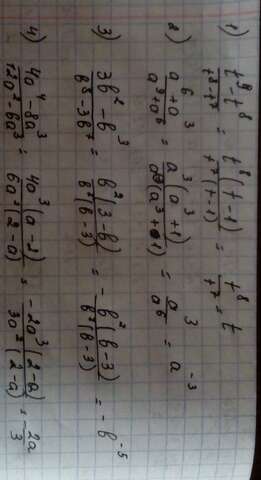 1) (t⁹-t⁸)/(t⁸-t⁷) = t⁸(t-1)/t⁷(t-1) = t⁸/t⁷ = t
2) (a⁶+a³)/(a⁹+a⁶) = a³(a³+1)/a⁶(a³+1) = a³/a⁶ = a⁻³
3) (3b²-b³)/(b⁸-3b⁷) = b²(3-b)/b⁷(b-3) = -b²(b-3)/b⁷(b-3) = -b⁻⁵
4) (4a⁴-8a³)/(12a²-6a³) = 4a³(a-2)/6a²(2-a) = -2a³(2-a)/3a²(2-a) = -2a/3